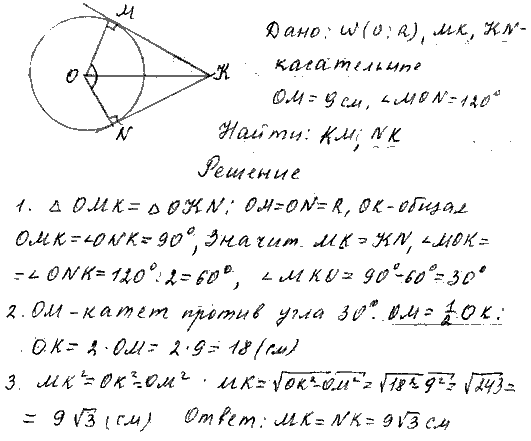 M
O
K
N
Дано: W(O; R), MK, KN-
касательные
OM = 9 см, ∠MON = 120°
Найти: KM; NK
Решение
1. △ OMK = △ OKN; OM = ON = R, OK - общая
OMK = ∠ONK = 90°, Значит MK = KN, ∠MOK =
= ∠ONK = 120° : 2 = 60°, ∠MKO = 90° - 60° = 30°
2. OM - катет против угла 30°. OM = 1/2 OK;
OK = 2 · OM = 2 · 9 = 18 (см)
3. MK² = OK² - OM² · MK = √OK² - OM² = √18² - 9² = √243 =
= 9√3 (см) Ответ: MK = NK = 9√3 см